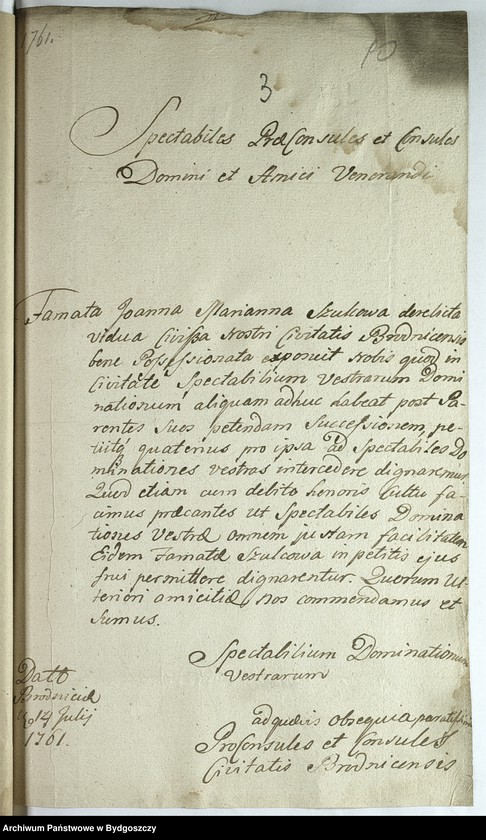 1761.
10
3
Spectabiles PræConsules et Consules
Domini et Amici Venerandi
Famata Joanna Marianna Szulcowa derelicta
vidua Civißa Nostri Civitatis Brodnicensis
bene Possessionata exponuit Nobis quod in
Civitate Spectabilium Vestrarum Domi
nationum aliquam adhuc habeat post Pa-
rentes suos petendam Successionem, pe-
tiitq quatenus pro ipsa ad Spectabiles Do
minationes vestras intercedere dignaremur
Quod etiam cum debito honoris cultu fa-
cimus præcantes ut Spectabiles Domina
tiones Vestræ omnem justam facilitatem
Eidem Famatæ Szulcowa in petitis ejus
frui permittere dignarentur. Quorum Ul-
teriori amicitiæ, nos commendamus et
sumus.
Spectabilium Dominationum
Vestrarum
Datt
Brodniciæ
14 Julij
1761.
ad quævis obsequia paratissimi
ProConsules et Consules
Civitatis Brodnicensis
Archiwum Państwowe w Bydgoszczy